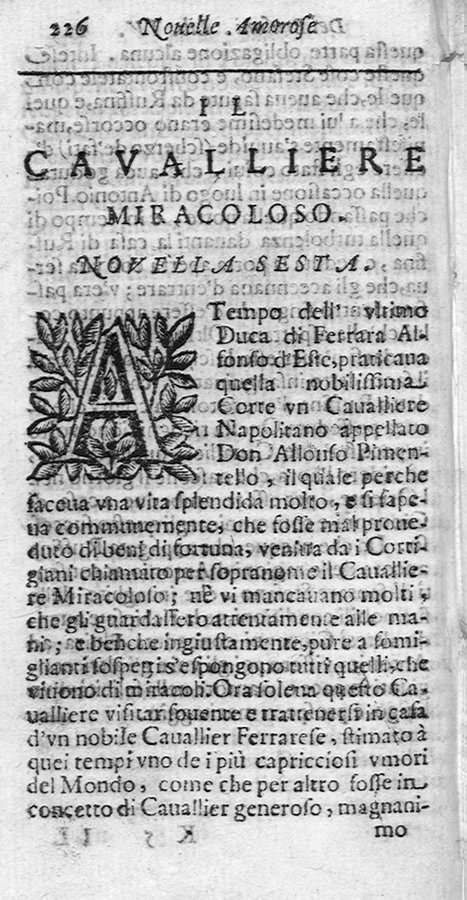 226 Nouelle Amorose
IL
CAVALLIERE
MIRACOLOSO.
NOVELLA SESTA.
A Tempo dell' vltimo
Duca di Ferrara Al-
fonſo d'Eſte, praticaua
quella nobiliſſima
Corte vn Caualliere
Napolitano appellato
Don Alfonſo Pimen-
tello, il quale perche
faceua vna vita ſplendida molto, e ſi ſape-
ua communemente, che foſſe mal proue-
duto di beni di fortuna, veniua da i Corti-
giani chiamato per ſopranome il Cauallie-
re Miracoloſo; nè vi mancauano molti,
che gli guardaſſero attentamente alle ma-
ni; e benche ingiuſtamente, pure a ſomi-
glianti ſoſpetti s'eſpongono tutti quelli, che
viuono di miracoli. Ora ſoleua queſto Ca-
ualliere viſitar ſouente e trattenerſi in caſa
d'vn nobile Cauallier Ferrareſe, ſtimato à
quei tempi vno de i più capriccioſi vmori
del Mondo, come che per altro foſſe in
concetto di Cauallier generoſo, magnani-
mo